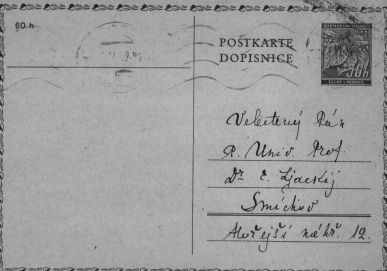 60 h
POSTKARTE
DOPISNICE
BÖHMEN UND MÄHREN
50h
ČECHY A MORAVA
Velectěný Pán
P. Univ. Prof.
Dr. E. Ljackij
Smíchov
Hořejší nábř. 12.